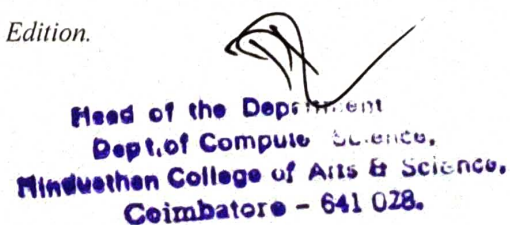 Edition.
Head of the Department
Dept.of Compute Science,
Hindusthan College of Arts & Science,
Coimbatore - 641 028.